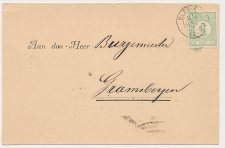 Aan den Heer Burgemeester
te
Gramsbergen